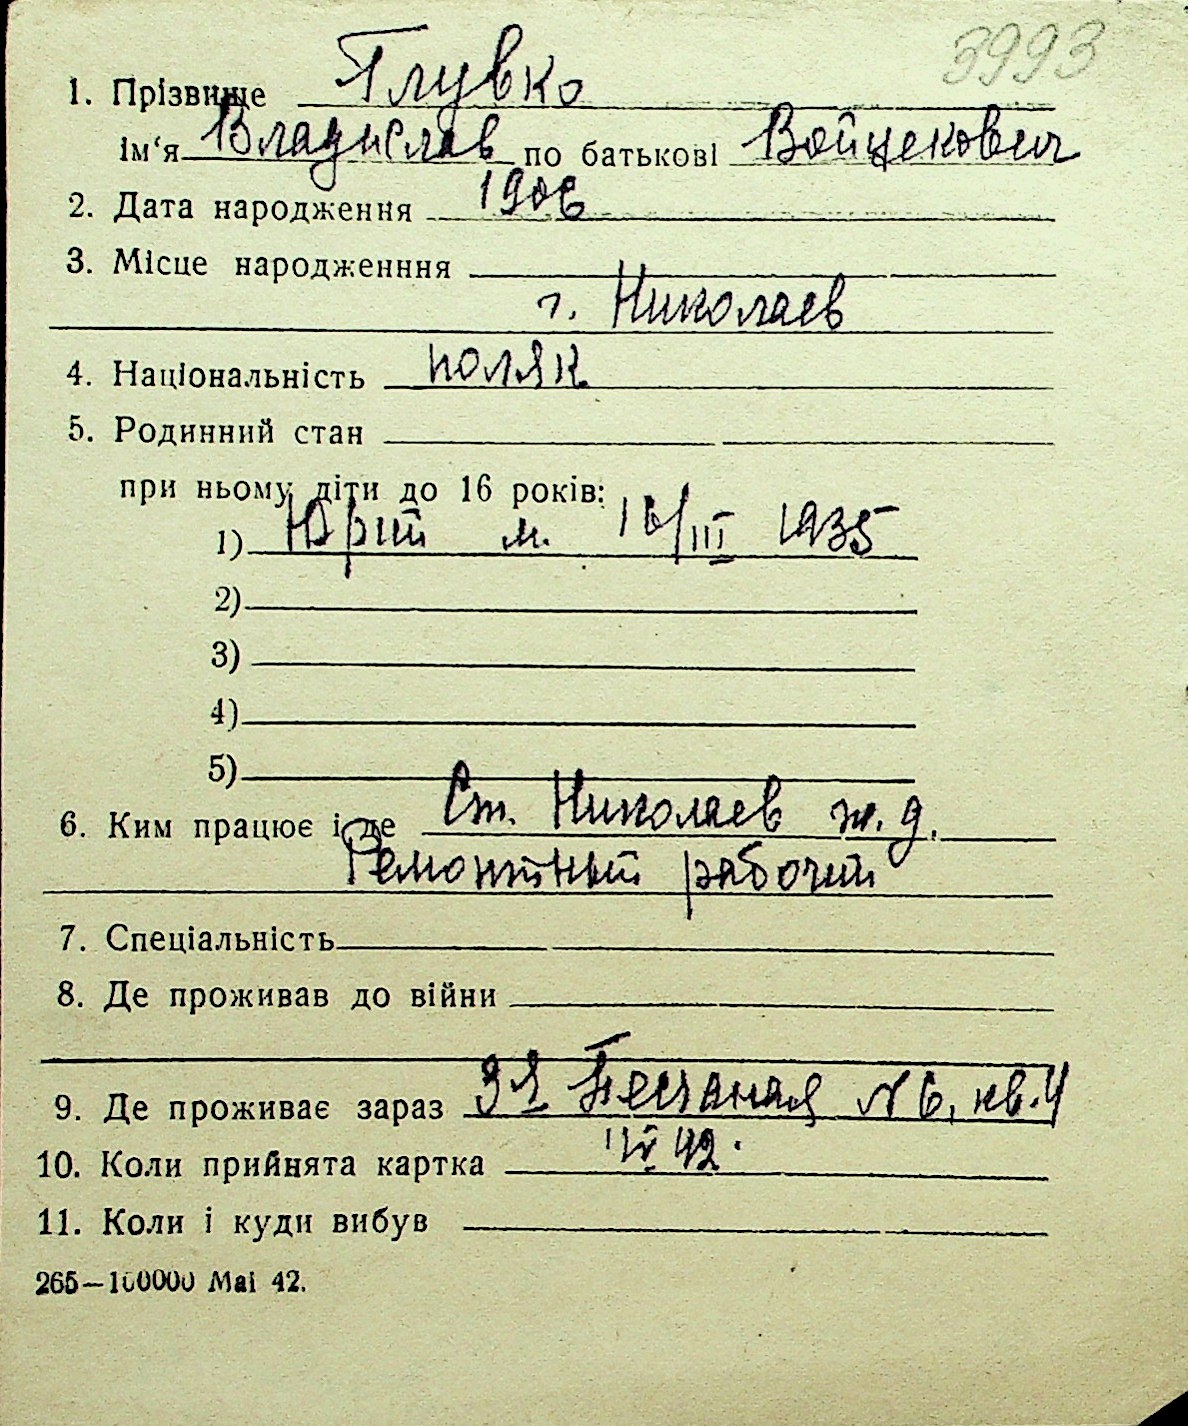 3993
1. Прізвище Глувко
ім‘я Владислав по батькові Войцекович
2. Дата народження 1906
3. Місце народженння
г. Николаев
4. Національність поляк
5. Родинний стан
при ньому діти до 16 років:
1) Юрий м. 16/III 1935
2)
3)
4)
5)
6. Ким працює і де Ст. Николаев ж. д.
Ремонтный рабочий
7. Спеціальність
8. Де проживав до війни
9. Де проживає зараз 3я Песчаная № 6, кв. 4
10. Коли прийнята картка 42.
11. Коли і куди вибув
265—100000 Маі 42.